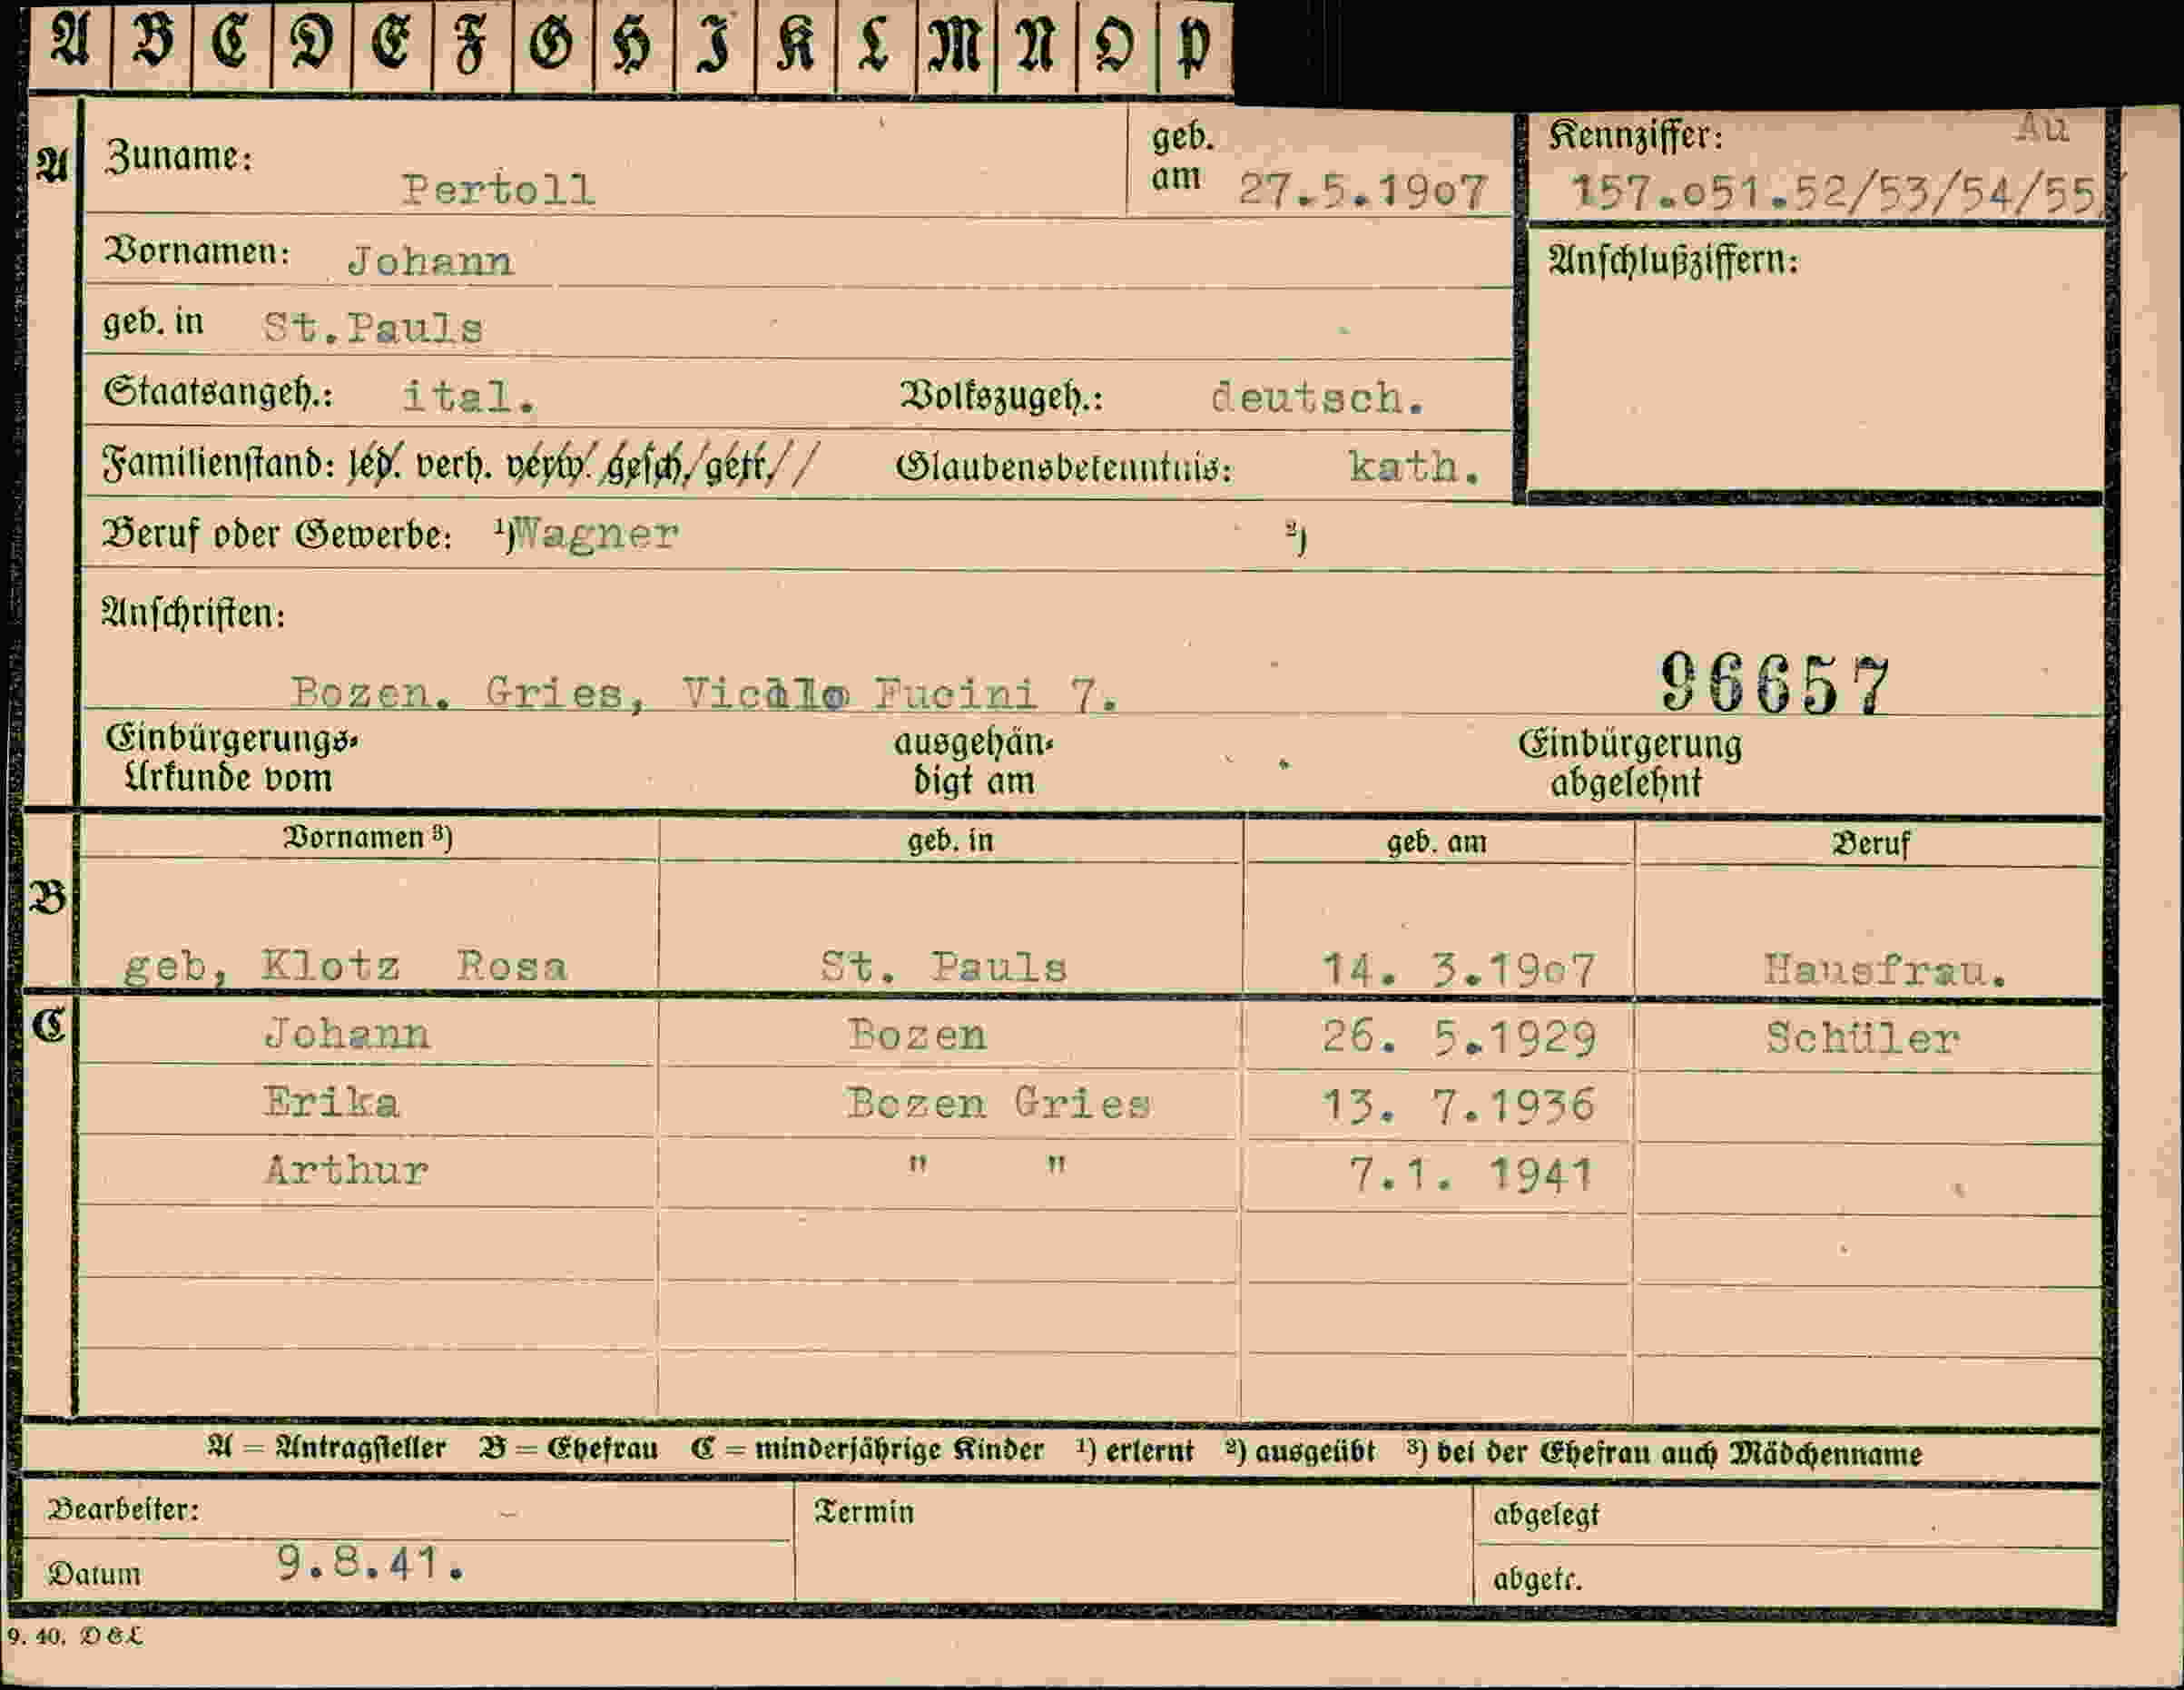 A B C D E F G H I K L M N O P
A Zuname: Pertoll geb. am 27.5.19o7 Kennziffer: Au
157.o51.52/53/54/55
Vornamen: Johann Anschlußziffern:
geb. in St.Pauls
Staatsangeh.: ital. Volkszugeh.: deutsch.
Familienstand: led. verh. verw. gesch. getr. Glaubensbekenntnis: kath.
Beruf oder Gewerbe: ¹)Wagner ²)
Anschriften:
Bozen. Gries, Fucini 7. 96657
Einbürgerungs- ausgehän- Einbürgerung
Urkunde vom digt am abgelehnt
Vornamen ³) geb. in geb. am Beruf
B
geb, Klotz Rosa St. Pauls 14. 3.19o7 Hausfrau.
C Johann Bozen 26. 5.1929 Schüler
Erika Bozen Gries 13. 7.1936
Arthur " " 7.1. 1941
A = Antragsteller B = Ehefrau C = minderjährige Kinder ¹) erlernt ²) ausgeübt ³) bei der Ehefrau auch Mädchenname
Bearbeiter: Termin abgelegt
Datum 9.8.41. abgetr.
9. 40. D&L